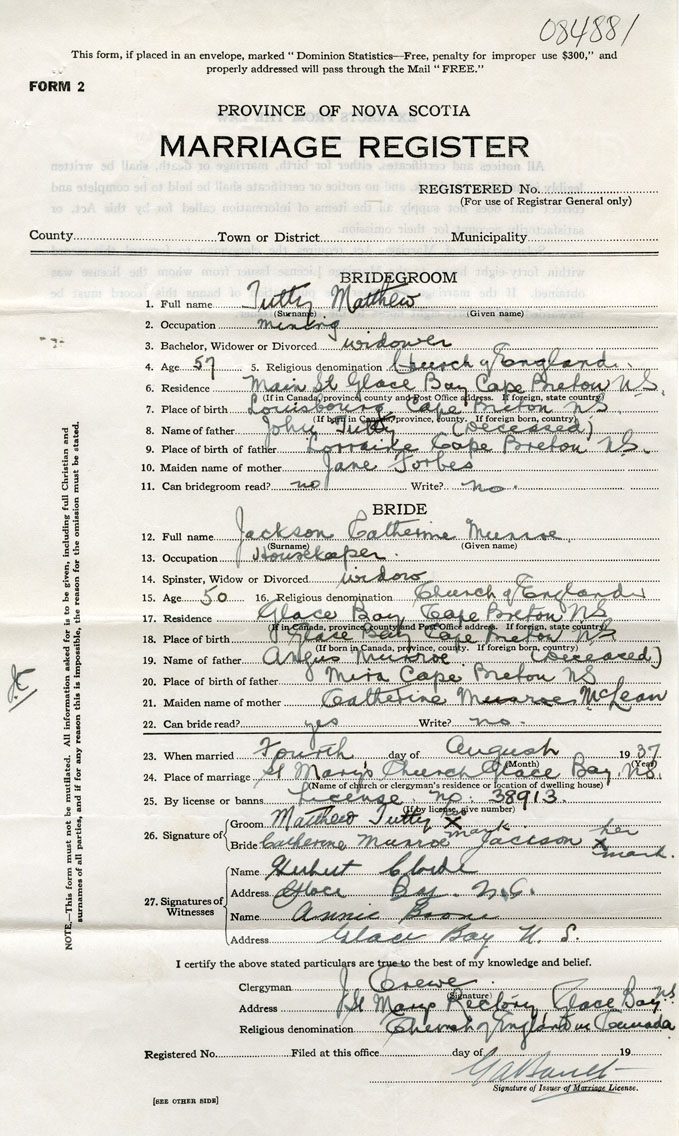 084881
This form, if placed in an envelope, marked "Dominion Statistics—Free, penalty for improper use $300," and
properly addressed will pass through the Mail "FREE."
FORM 2
PROVINCE OF NOVA SCOTIA
MARRIAGE REGISTER
REGISTERED No.
(For use of Registrar General only)
County Town or District Municipality
BRIDEGROOM
1. Full name Tutty Matthew
(Surname) (Given name)
2. Occupation mining
3. Bachelor, Widower or Divorced widower
4. Age 57 5. Religious denomination Church of England
6. Residence Main St Glace Bay Cape Breton N.S.
(If in Canada, province, county and Post Office address. If foreign, state country)
7. Place of birth Louisbourg Cape Breton N.S.
(If born in Canada, province, county. If foreign born, country)
8. Name of father John Tutty (Deceased)
9. Place of birth of father Lorraine Cape Breton N.S.
10. Maiden name of mother Jane Forbes
11. Can bridegroom read? no Write? no.
BRIDE
12. Full name Jackson Catherine Munroe
(Surname) (Given name)
13. Occupation Housekeeper.
14. Spinster, Widow or Divorced widow
15. Age 50 16. Religious denomination Church of England
17. Residence Glace Bay Cape Breton NS
(If in Canada, province, county and Post Office address. If foreign, state country)
18. Place of birth Glace Bay Cape Breton NS
(If born in Canada, province, county. If foreign born, country)
19. Name of father Angus Munroe (Deceased)
20. Place of birth of father Mira Cape Breton NS
21. Maiden name of mother Catherine Munroe McLean
22. Can bride read? yes Write? no.
23. When married Fourth day of August 1937
(Month) (Year)
24. Place of marriage St Mary's Church Glace Bay, N.S.
(Name of church or clergyman's residence or location of dwelling house)
25. By license or banns License no. 38913.
(If by license, give number)
26. Signature of
Groom Matthew Tutty his X mark
Bride Catherine Munroe Jackson her X mark.
27. Signatures of Witnesses
Name Herbert
Address Glace Bay. N.S.
Name Annie Boone
Address Glace Bay N. S.
I certify the above stated particulars are true to the best of my knowledge and belief.
Clergyman J. Crewe
(Signature)
Address St Mary's Rectory, Glace Bay, NS
Religious denomination Church of England in Canada
Registered No. Filed at this office day of 19
Signature of Issuer of Marriage License.
[SEE OTHER SIDE]
NOTE.—This form must not be mutilated. All information asked for is to be given, including full Christian and
surnames of all parties, and if for any reason this is impossible, the reason for the omission must be stated.